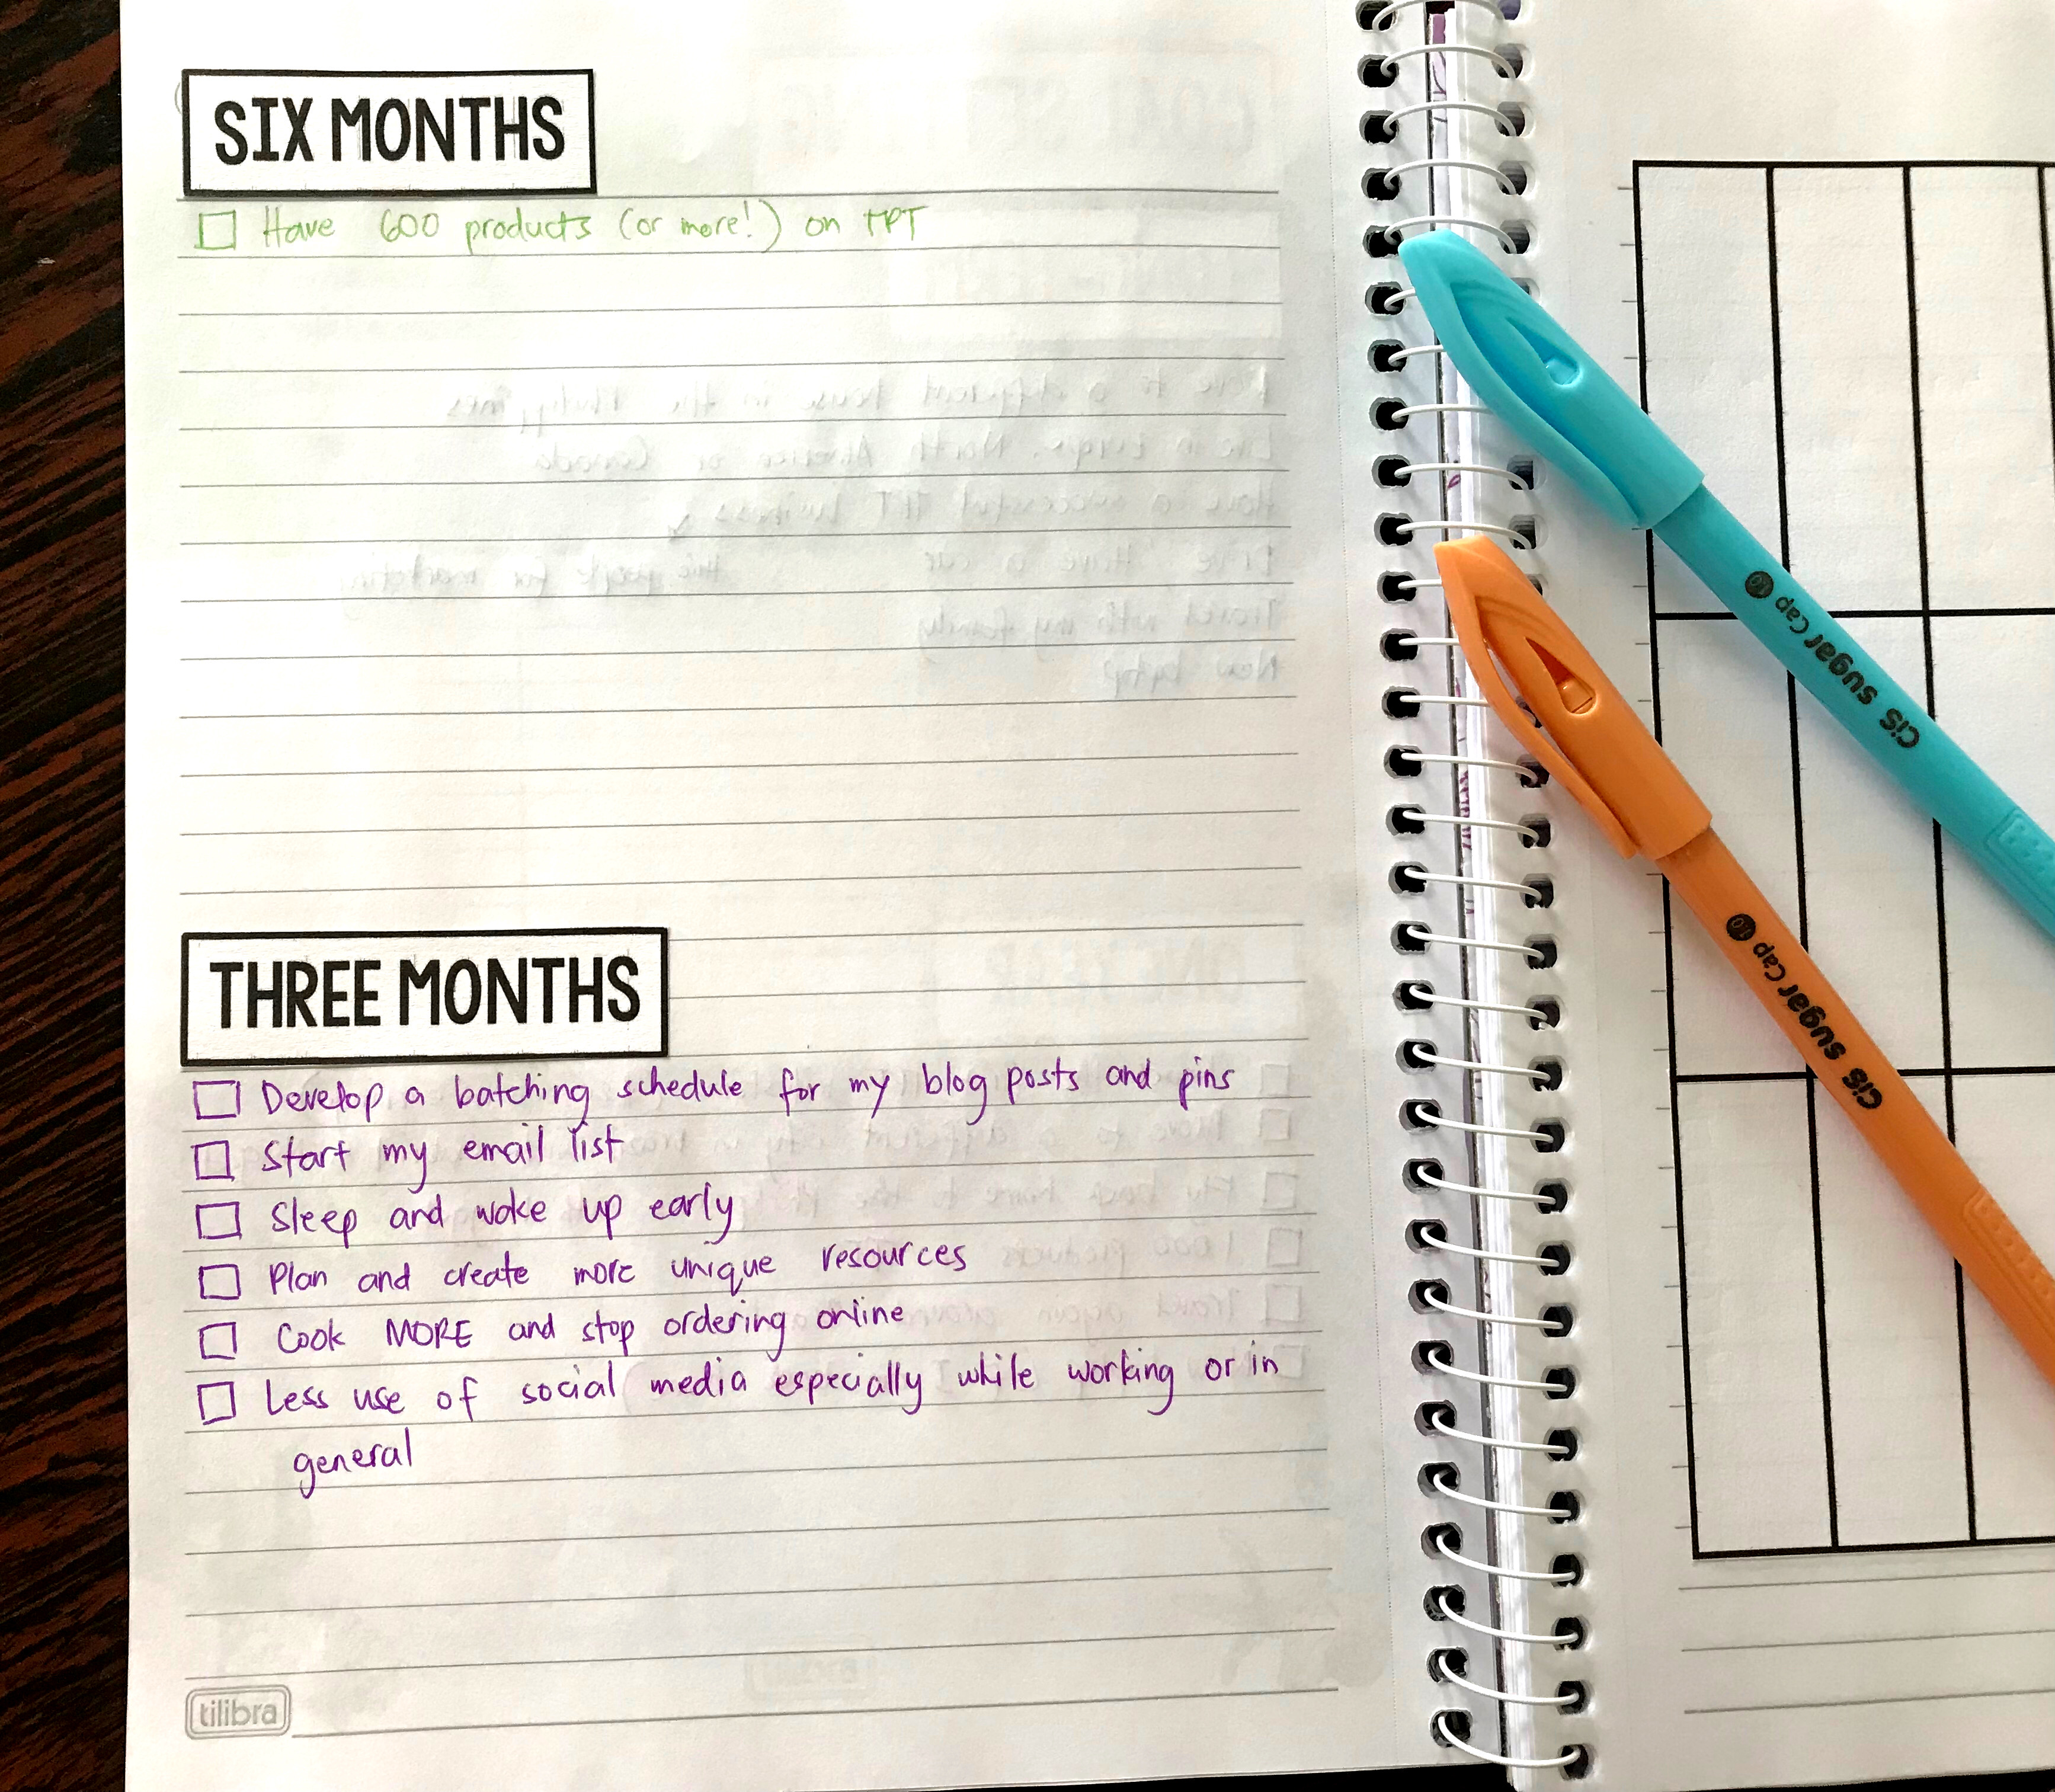 SIX MONTHS
Have 600 products (or more!) on TPT
THREE MONTHS
Develop a batching schedule for my blog posts and pins
Start my email list
Sleep and wake up early
Plan and create more unique resources
Cook MORE and stop ordering online
Less use of social media especially while working or in
general
tilibra
CiS sugar Cap 1.0
CiS sugar Cap 1.0